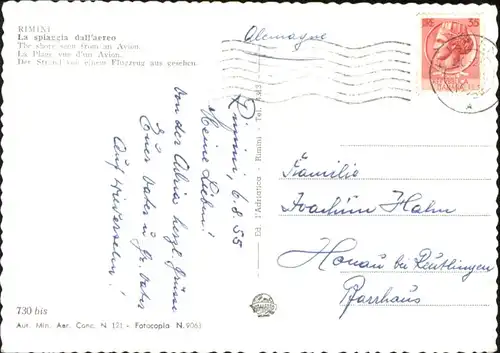 RIMINI
La spiaggia dall'aereo
The shore seen from an Avion.
La Plaie vue d'un Avion.
Der Strand von einem Flugzeug aus gesehen.
Alemagne
Rimini, 6.8.55
Meine Lieben!
Von der Adria herzl. Grüsse
Euer Vater u. Gr. Vater
Auf Wiedersehn!
Ed. l'Adriatica - Rimini - Tel.
Familie
Joachim Hahn
Honau bei Reutlingen
Pfarrhaus
730 bis
Aut. Min. Aer. Conc. N. 121 - Fotocopia N. 9063